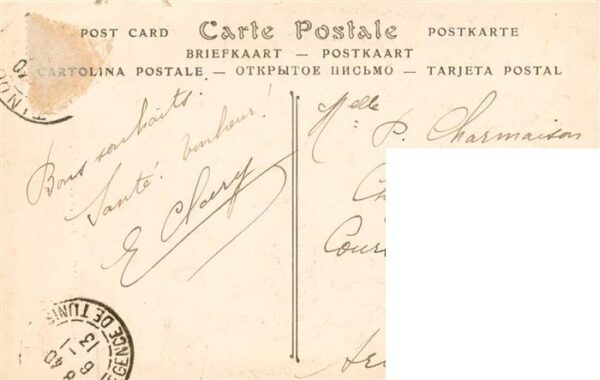 POST CARD Carte Postale POSTKARTE
BRIEFKAART — POSTKAART
CARTOLINA POSTALE — ОТКРЫТОЕ ПИСЬМО — TARJETA POSTAL
Bons souhaits.
Santé! bonheur!
Melle P. Charmaison
Ch
Cour
GENCE DE TUNIS
13 - 1